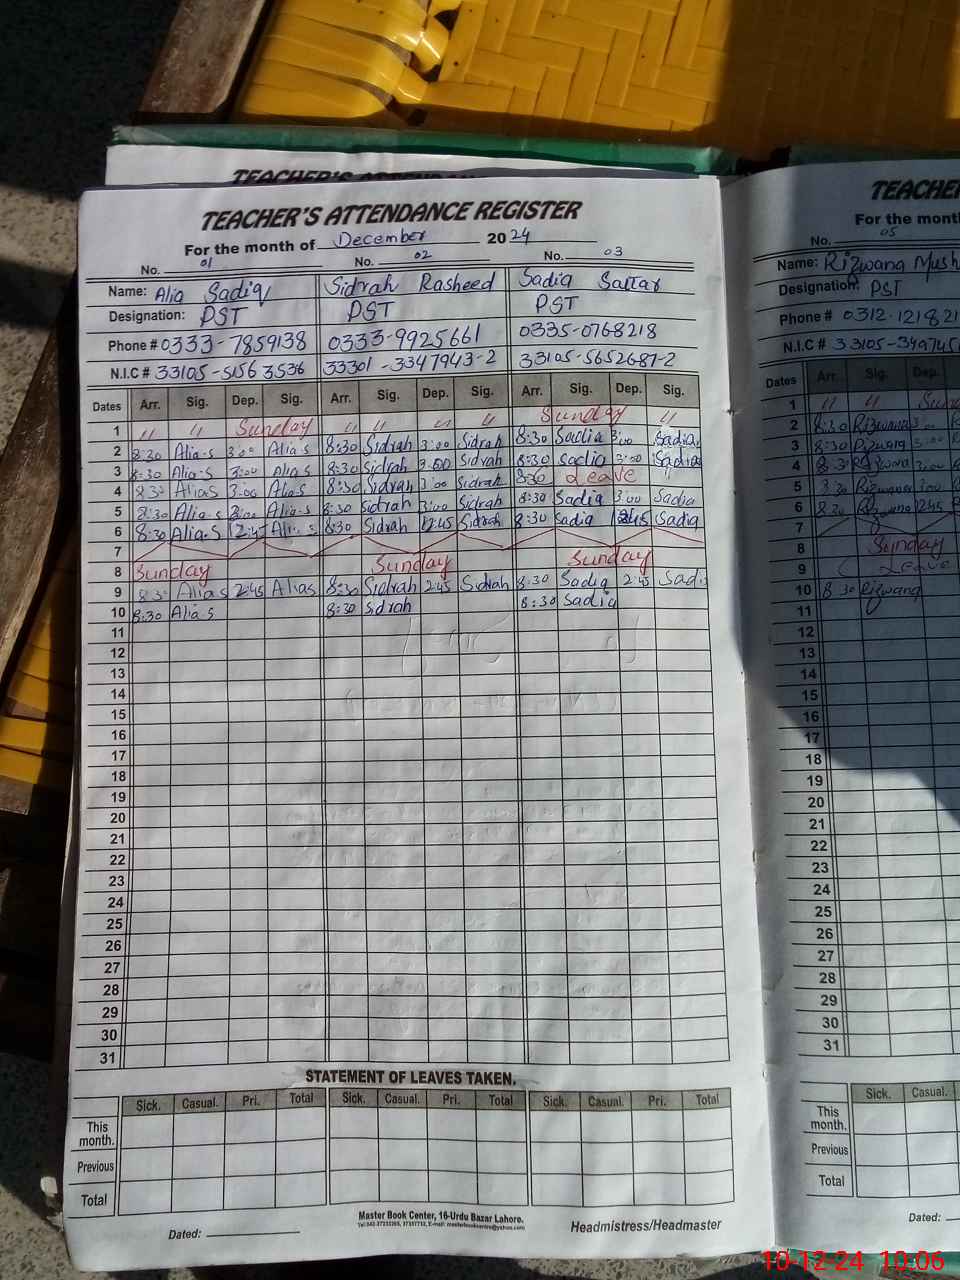 TEACHER'S ATTENDANCE REGISTER
For the month of December 2024
No. 01 No. 02 No. 03
Name: Alia Sadiq Sidrah Rasheed Sadia Sattar
Designation: PST PST PST
Phone # 0333-7859138 0333-9925661 0335-0768218
N.I.C # 33105-5156 3536 33301-3347943-2 33105-5652687-2
Dates Arr. Sig. Dep. Sig. Arr. Sig. Dep. Sig. Arr. Sig. Dep. Sig.
1 " " Sunday " " " " Sunday "
2 8:30 Alia-S 3:00 Alia-S 8:30 Sidrah 3:00 Sidrah 8:30 Sadia 3:00 Sadia
3 8:30 Alia-S 3:00 Alia-S 8:30 Sidrah 3:00 Sidrah 8:30 Sadia 3:00 Sadia
4 8:30 Alia-S 3:00 Alia-S 8:30 Sidrah 3:00 Sidrah 8:30 Leave
5 8:30 Alia-S 3:00 Alia-S 8:30 Sidrah 3:00 Sidrah 8:30 Sadia 3:00 Sadia
6 8:30 Alia-S 12:45 Alia-S 8:30 Sidrah 12:45 Sidrah 8:30 Sadia 12:45 Sadia
7
8 Sunday Sunday Sunday
9 8:30 Alias 2:45 Alias 8:30 Sidrah 2:45 Sidrah 8:30 Sadia 2:45 Sadi
10 8:30 Alia-S 8:30 Sidrah 8:30 Sadia
11
12
13
14
15
16
17
18
19
20
21
22
23
24
25
26
27
28
29
30
31
STATEMENT OF LEAVES TAKEN.
Sick. Casual. Pri. Total Sick. Casual. Pri. Total Sick. Casual. Pri. Total
This month.
Previous
Total
Master Book Center, 16-Urdu Bazar Lahore.
Dated: Headmistress/Headmaster
TEACHER
For the month
No. 05
Name: Rizwana Mush
Designation: PST
Phone # 0312-121821
N.I.C # 33105-34974
Dates Arr. Sig. Dep.
1 " " Sun
2 8:30 Rizwana 3:00
3 8:30 Rizwana 3:00
4 8:30 Rizwana 3:00
5 8:30 Rizwana 3:00
6 8:30 Rizwana 2:45
7
8 Sunday
9 Leave
10 8:30 Rizwana
11
12
13
14
15
16
17
18
19
20
21
22
23
24
25
26
27
28
29
30
31
Sick. Casual.
This month.
Previous
Total
Dated:
10-12-24 10:06